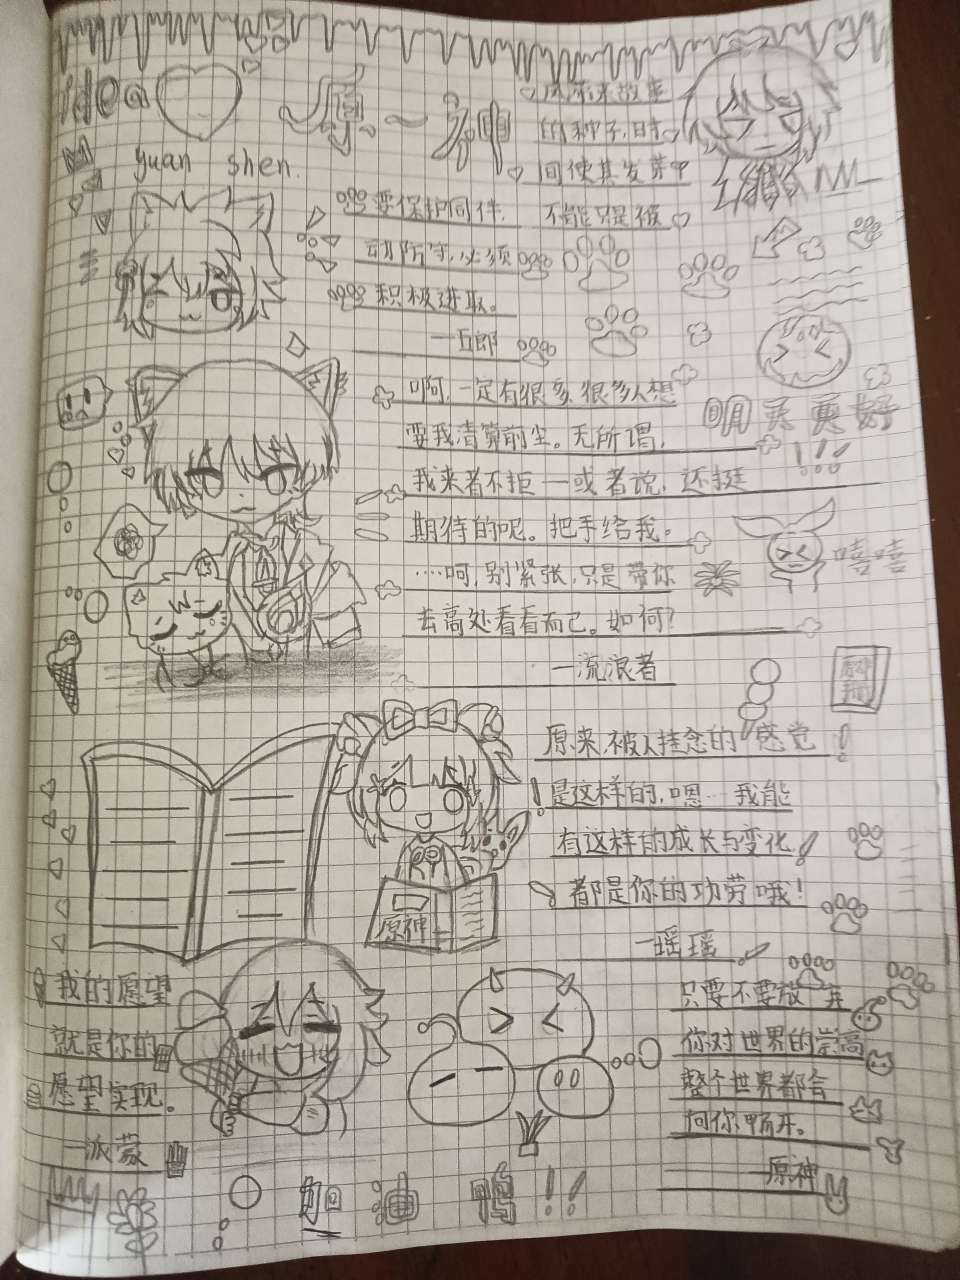 原神
yuan shen.
风带来故事
的种子，时
间使其发芽
要保护同伴，
不能只是被
动防守，必须
积极进取。
—五郎
啊，一定有很多，很多人想
要我清算前尘。无所谓，
我来者不拒—或者说，还挺
期待的呢。把手给我。
....呵，别紧张，只是带你
去高处看看而已。如何？
—流浪者
明天更好
!!!
嘻嘻
原来，被人挂念的感觉
是这样的，嗯…我能
有这样的成长与变化，
都是你的功劳哦！
—瑶瑶
原神
我的愿望
就是你的
愿望实现。
—派蒙
只要不要放弃
你对世界的崇高
整个世界都会
向你敞开。
——原神
加油!!